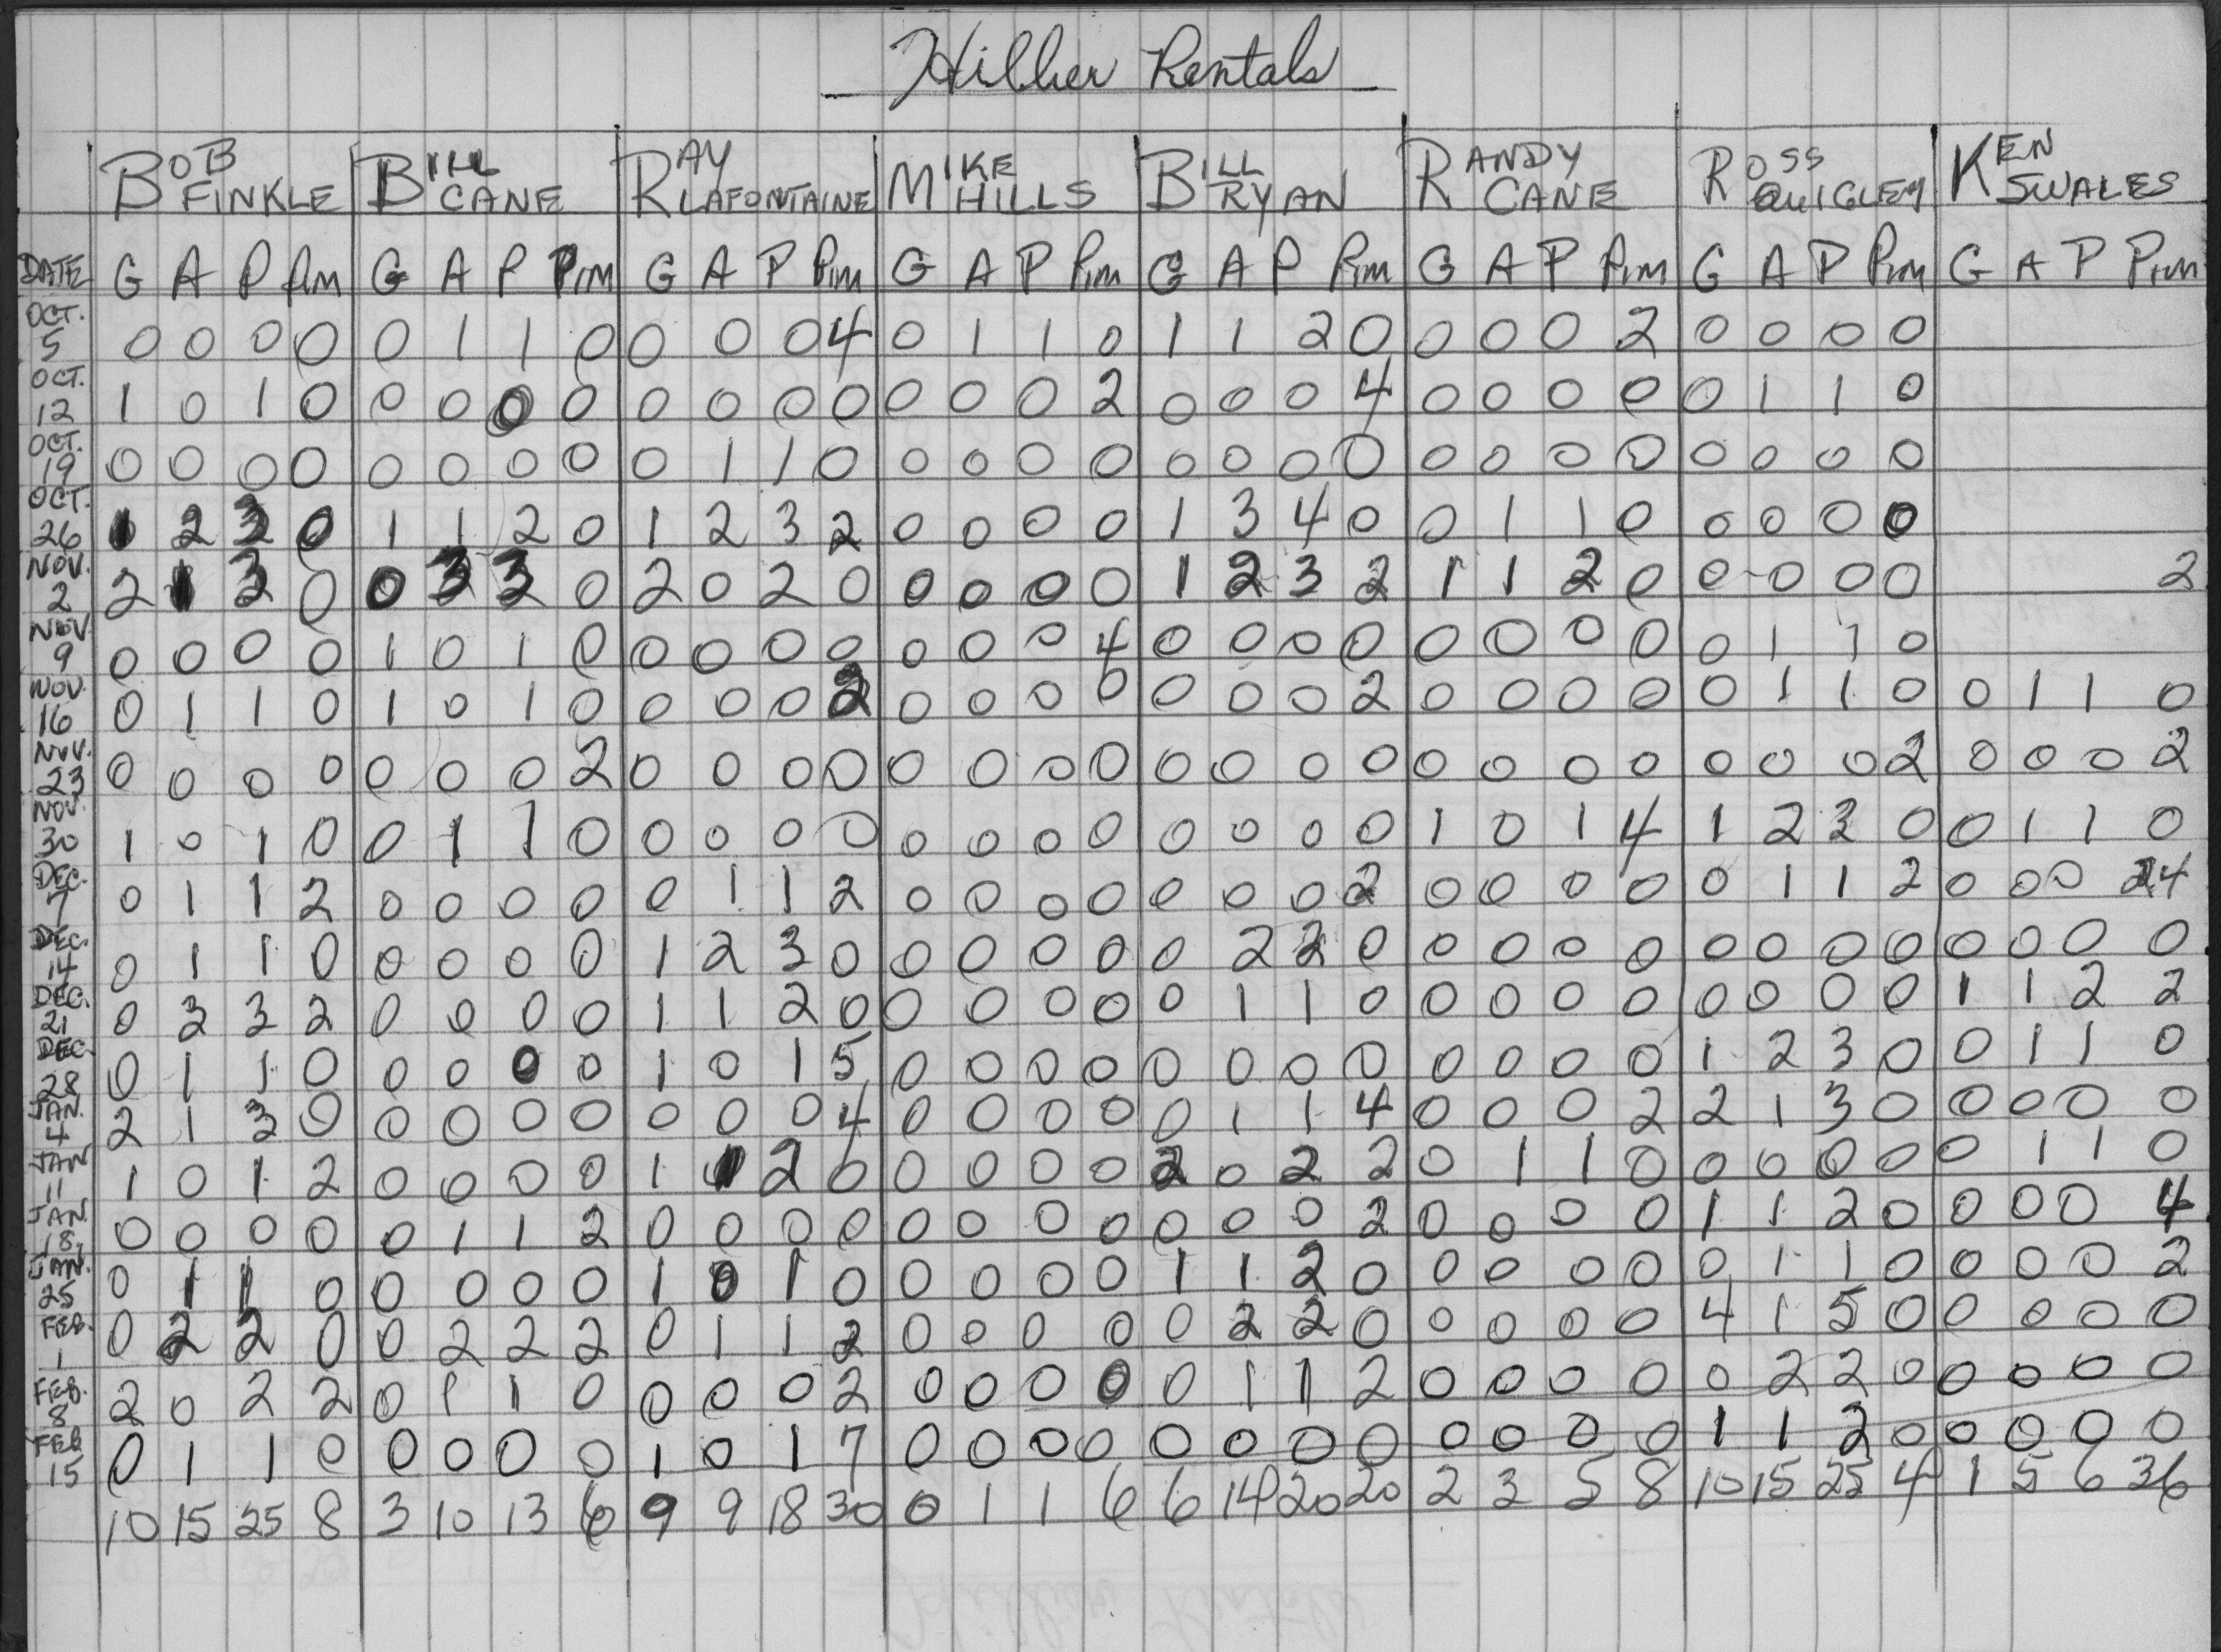 Hillier Rentals
BOB FINKLE BILL CANE RAY LAFONTAINE MIKE HILLS BILL RYAN RANDY CANE ROSS QUIGLEY KEN SWALES
DATE G A P Pim G A P Pim G A P Pim G A P Pim G A P Pim G A P Pim G A P Pim G A P Pim
OCT. 5 0 0 0 0 0 1 1 0 0 0 0 4 0 1 1 0 1 1 2 0 0 0 0 2 0 0 0 0
OCT. 12 1 0 1 0 0 0 0 0 0 0 0 0 0 0 0 2 0 0 0 4 0 0 0 0 0 1 1 0
OCT. 19 0 0 0 0 0 0 0 0 0 1 1 0 0 0 0 0 0 0 0 0 0 0 0 0 0 0 0 0
OCT. 26 1 2 3 0 1 1 2 0 1 2 3 2 0 0 0 0 1 3 4 0 0 1 1 0 0 0 0 0
NOV. 2 2 1 3 0 0 3 3 0 2 0 2 0 0 0 0 0 1 2 3 2 1 1 2 0 0 0 0 0 2
NOV. 9 0 0 0 0 1 0 1 0 0 0 0 0 0 0 0 4 0 0 0 0 0 0 0 0 0 1 1 0
NOV. 16 0 1 1 0 1 0 1 0 0 0 0 2 0 0 0 0 0 0 0 2 0 0 0 0 0 1 1 0 0 1 1 0
NOV. 23 0 0 0 0 0 0 0 2 0 0 0 0 0 0 0 0 0 0 0 0 0 0 0 0 0 0 0 2 0 0 0 2
NOV. 30 1 0 1 0 0 1 1 0 0 0 0 0 0 0 0 0 0 0 0 0 1 0 1 4 1 2 3 0 0 1 1 0
DEC. 7 0 1 1 2 0 0 0 0 0 1 1 2 0 0 0 0 0 0 0 2 0 0 0 0 0 1 1 2 0 0 0 24
DEC. 14 0 1 1 0 0 0 0 0 1 2 3 0 0 0 0 0 0 2 2 0 0 0 0 0 0 0 0 0 0 0 0 0
DEC. 21 0 3 3 2 0 0 0 0 1 1 2 0 0 0 0 0 0 1 1 0 0 0 0 0 0 0 0 0 1 1 2 2
DEC. 28 0 1 1 0 0 0 0 0 1 0 1 5 0 0 0 0 0 0 0 0 0 0 0 0 1 2 3 0 0 1 1 0
JAN. 4 2 1 3 0 0 0 0 0 0 0 0 4 0 0 0 0 0 1 1 4 0 0 0 2 2 1 3 0 0 0 0 0
JAN 11 1 0 1 2 0 0 0 0 1 1 2 0 0 0 0 0 2 0 2 2 0 1 1 0 0 0 0 0 0 1 1 0
JAN. 18. 0 0 0 0 0 1 1 2 0 0 0 0 0 0 0 0 0 0 0 2 0 0 0 0 1 1 2 0 0 0 0 4
JAN. 25 0 1 1 0 0 0 0 0 1 0 1 0 0 0 0 0 1 1 2 0 0 0 0 0 0 1 1 0 0 0 0 2
FEB. 1 0 2 2 0 0 2 2 2 0 1 1 2 0 0 0 0 0 2 2 0 0 0 0 0 4 1 5 0 0 0 0 0
FEB. 8 2 0 2 2 0 1 1 0 0 0 0 2 0 0 0 0 0 1 1 2 0 0 0 0 0 2 2 0 0 0 0 0
FEB 15 0 1 1 0 0 0 0 0 1 0 1 7 0 0 0 0 0 0 0 0 0 0 0 0 1 1 2 0 0 0 0 0
10 15 25 8 3 10 13 6 9 9 18 30 0 1 1 6 6 14 20 20 2 3 5 8 10 15 25 4 1 5 6 36